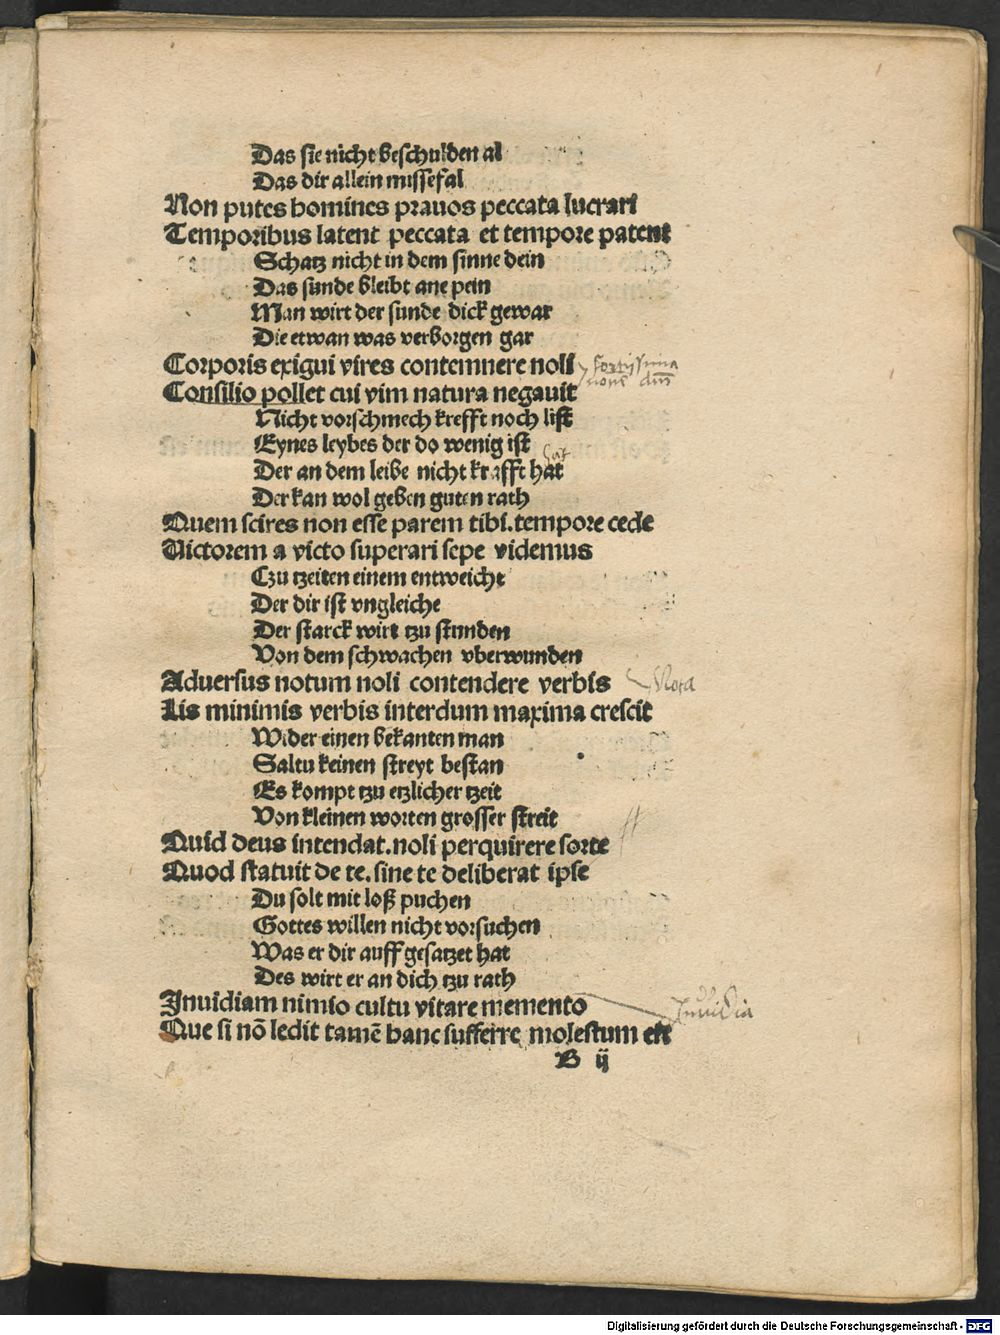 Das sie nicht beschulden al
Das dir allein missefal
Non putes homines prauos peccata lucrari
Temporibus latent peccata et tempore patent
Schatz nicht in dem sinne dein
Das sunde bleibt ane pein
Man wirt der sunde dick gewar
Die etwan was verborgen gar
Corporis exigui vires contemnere noli
Consilio pollet cui vim natura negauit
Nicht vorschmech krefft noch list
Eynes leybes der do wenig ist
Der an dem leibe nicht krafft hat
Der kan wol geben guten rath
Quem scires non esse parem tibi. tempore cede
Uictorem a victo superari sepe videmus
Czu tzeiten einem entweicht
Der dir ist vngleiche
Der starck wirt tzu stunden
Von dem schwachen vberwunden
Aduersus notum noli contendere verbis
Nota
Lis minimis verbis interdum maxima crescit
Wider einen bekanten man
Saltu keinen streyt bestan
Es kompt tzu etzlicher tzeit
Von kleinen worten grosser streit
Quid deus intendat. noli perquirere sorte
Quod statuit de te. sine te deliberat ipse
Du solt mit loß puchen
Gottes willen nicht vorsuchen
Was er dir auff gesatzet hat
Des wirt er an dich tzu rath
Inuidiam nimio cultu vitare memento
Inuidia
Que si nō ledit tamē hanc sufferre molestum est
B ij
Digitalisierung gefördert durch die Deutsche Forschungsgemeinschaft - DFG